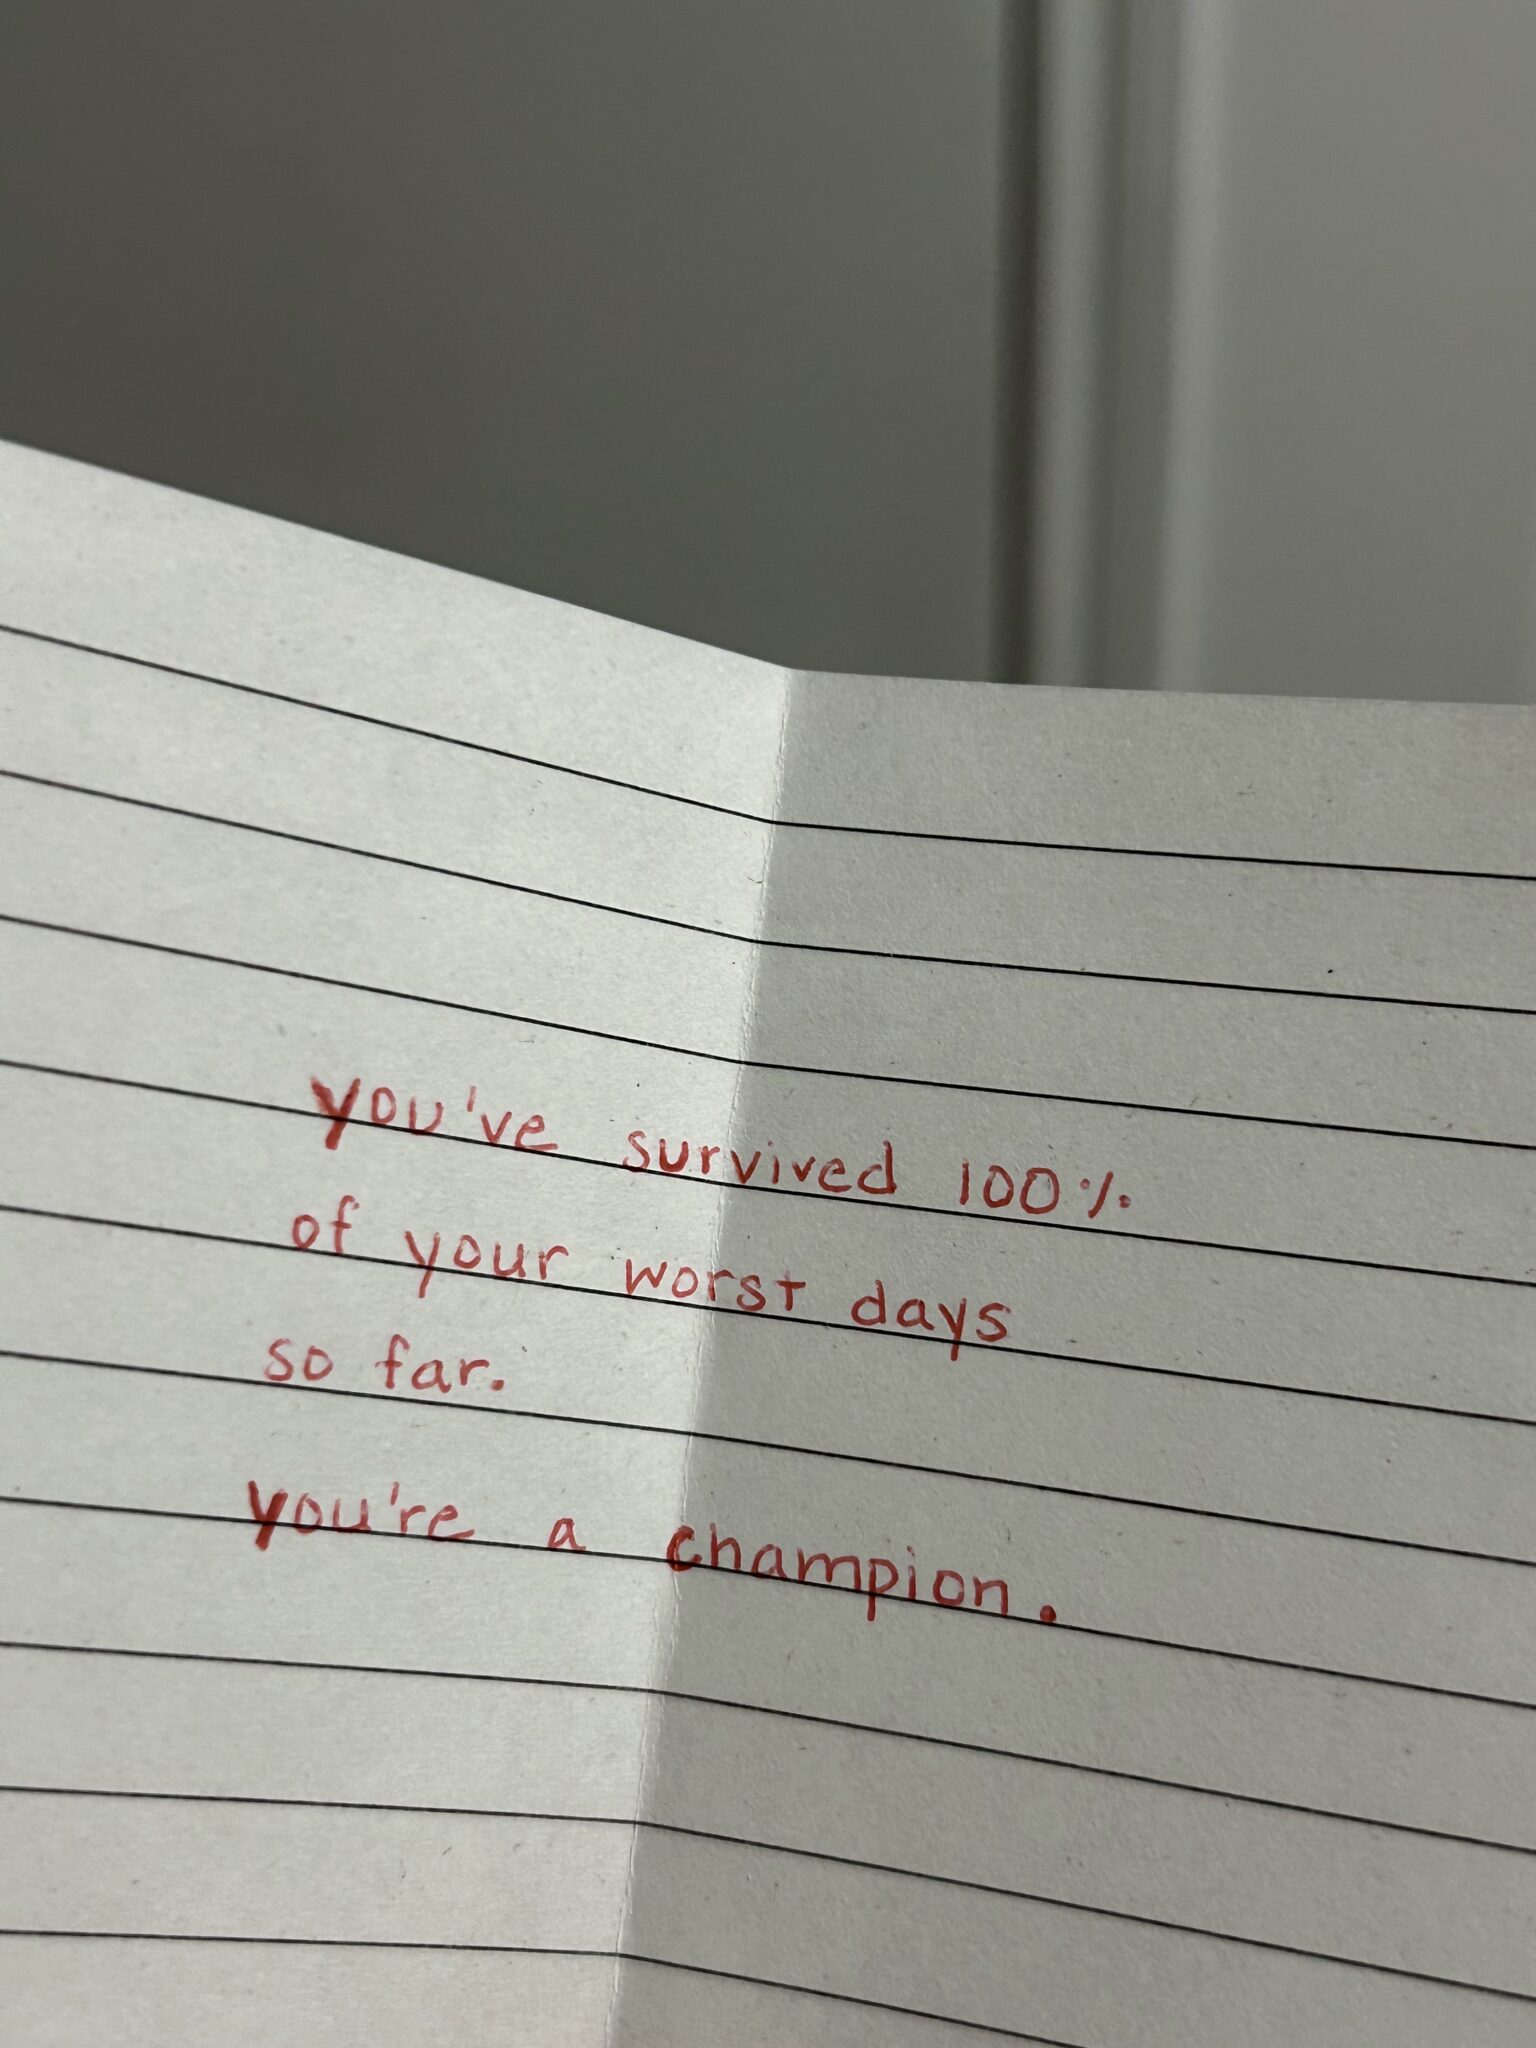 you've survived 100%
of your worst days
so far.
you're a champion.